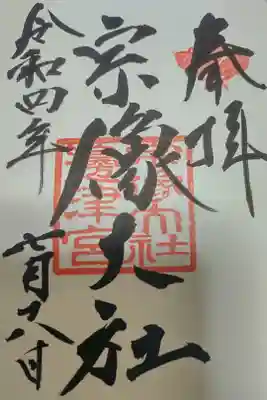 奉拝
宗像大社
令和四年
七月八日
宗像大社
邊津宮